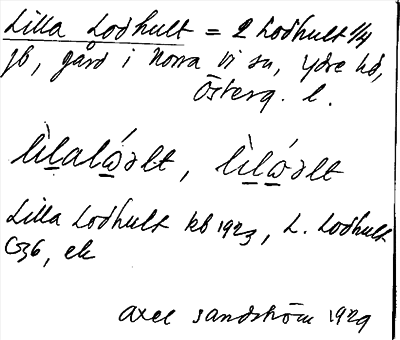 Lilla Lodhult = 2 Lodhult 1/4
jb, gård i Norra Vi sn, Ydre hd,
Österg. l.
lìlalódlt, lìlódlt
Lilla Lodhult kb 1923, L. Lodhult
G36, ek
Axel Sandström 1929